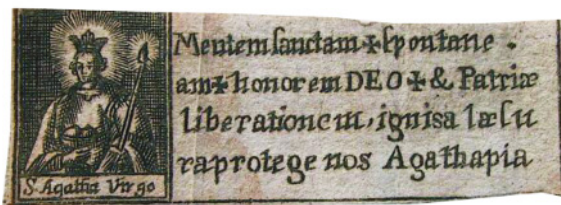 S. Agatha Virgo
Mentem sanctam + spontane
am + honorem DEO + & Patriæ
liberationem, ignis a læsu
ra protege nos Agatha pia